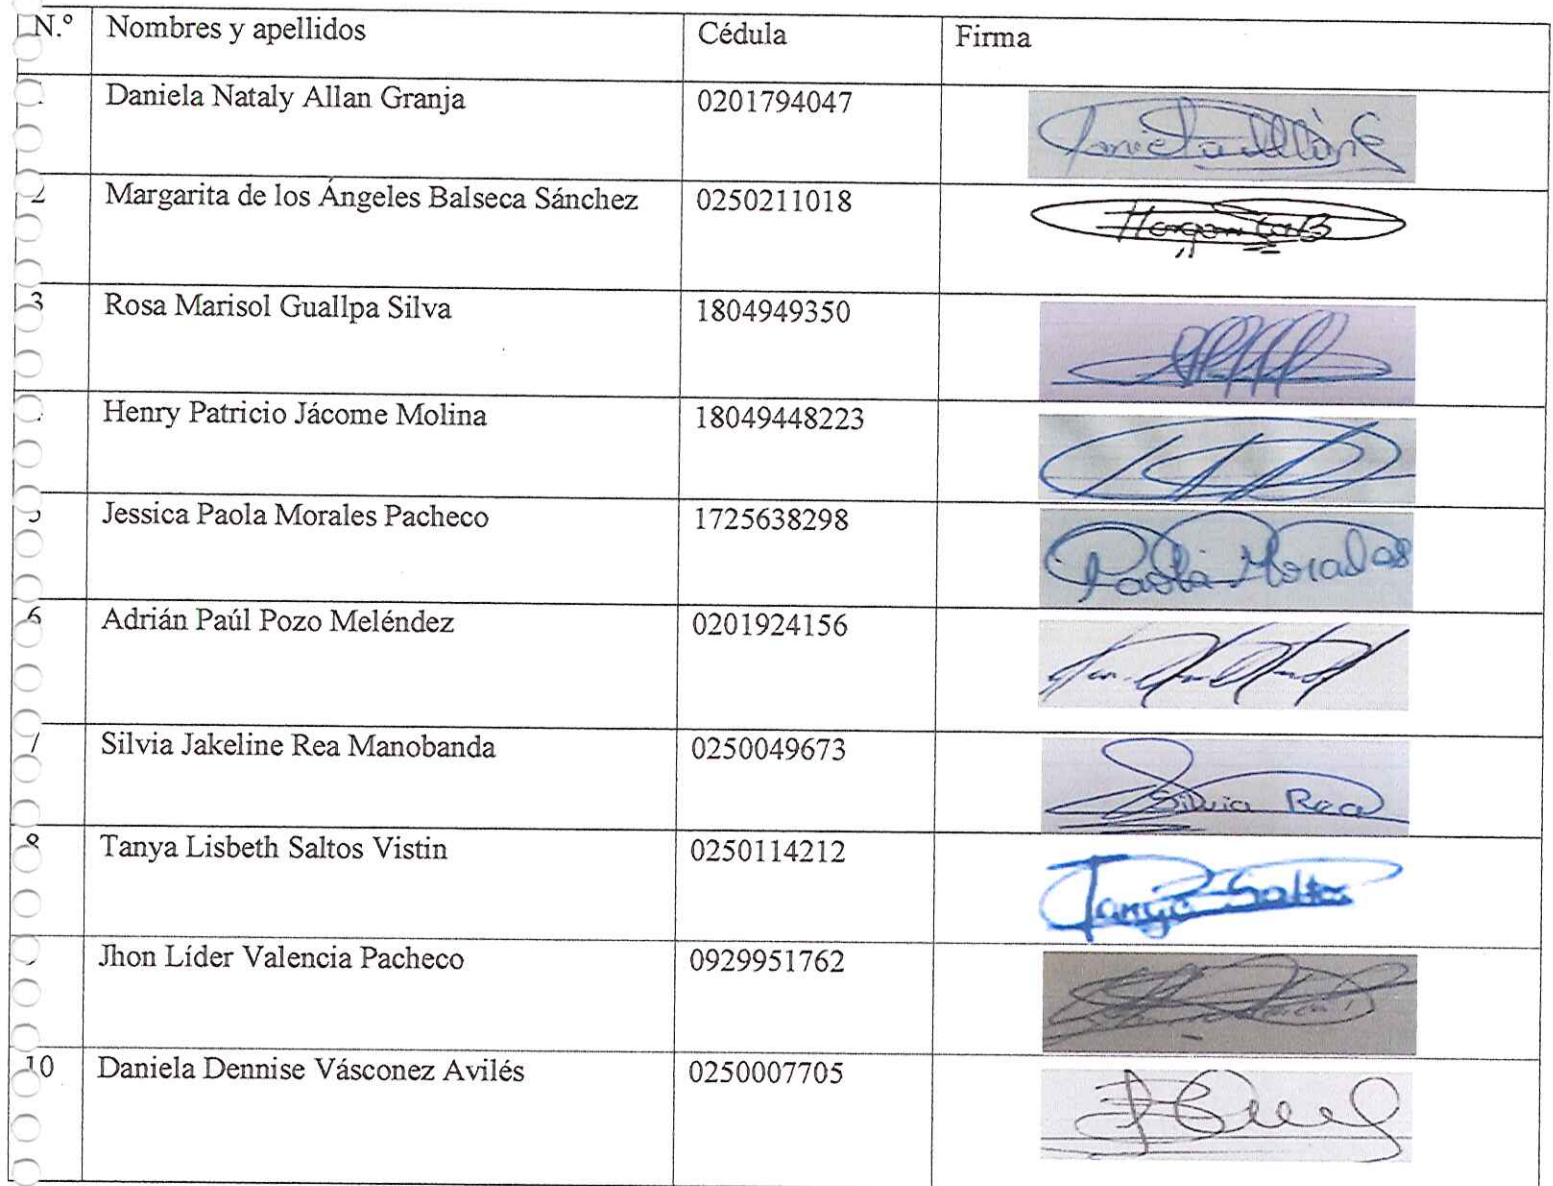 N.º Nombres y apellidos Cédula Firma
Daniela Nataly Allan Granja 0201794047
2 Margarita de los Ángeles Balseca Sánchez 0250211018 Margarita B
3 Rosa Marisol Guallpa Silva 1804949350
Henry Patricio Jácome Molina 18049448223
5 Jessica Paola Morales Pacheco 1725638298 Paola Morales
6 Adrián Paúl Pozo Meléndez 0201924156
7 Silvia Jakeline Rea Manobanda 0250049673 Silvia Rea
8 Tanya Lisbeth Saltos Vistin 0250114212 Tanya Saltos
Jhon Líder Valencia Pacheco 0929951762
10 Daniela Dennise Vásconez Avilés 0250007705